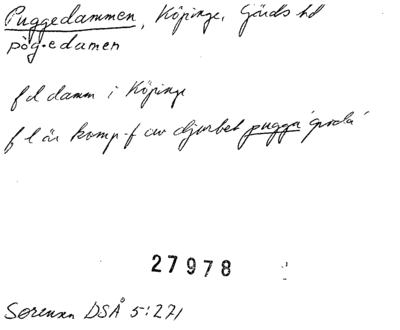 Puggedammen, Köpinge, Gärds hd
pòg·edamen
f d damm i Köpinge
f l är komp-f av djurbet pugga 'groda'
27978
Sörensen DSÅ 5:271